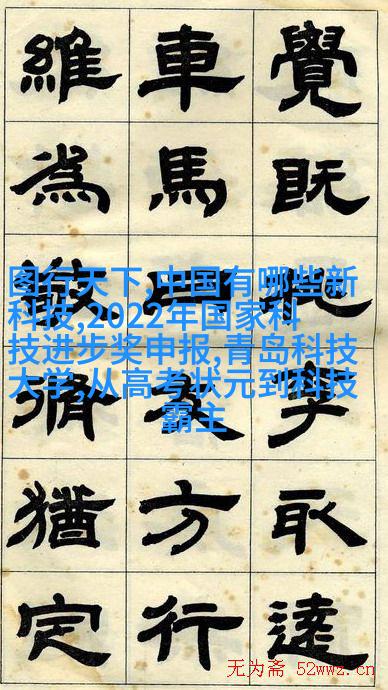 覺既取
車馬方行
維為猶定
图行天下,中国有哪些新
科技,2022年国家科
技进步奖申报,青岛科技
大学,从高考状元到科技
霸主
无为斋 52wwz.cn